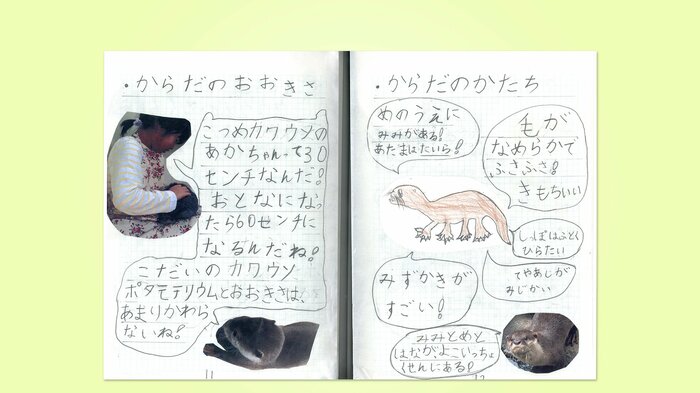 ・からだのおおきさ
こつめカワウソの
あかちゃんって30
センチなんだ!
おとなになっ
たら60センチに
なるんだね!
こだいのカワウソ
ポタモテリウムとおおきさは、
あまりかわら
ないね!
11
・からだのかたち
めのうえに
みみがある!
あたまはたいら!
毛が
なめらかで
ふさふさ!
きもちいい
しっぽはふとく
ひらたい
てやあしが
みじかい
みずかきが
すごい!
みみとめと
はなが、よこいっちょ
くせんにある!
12